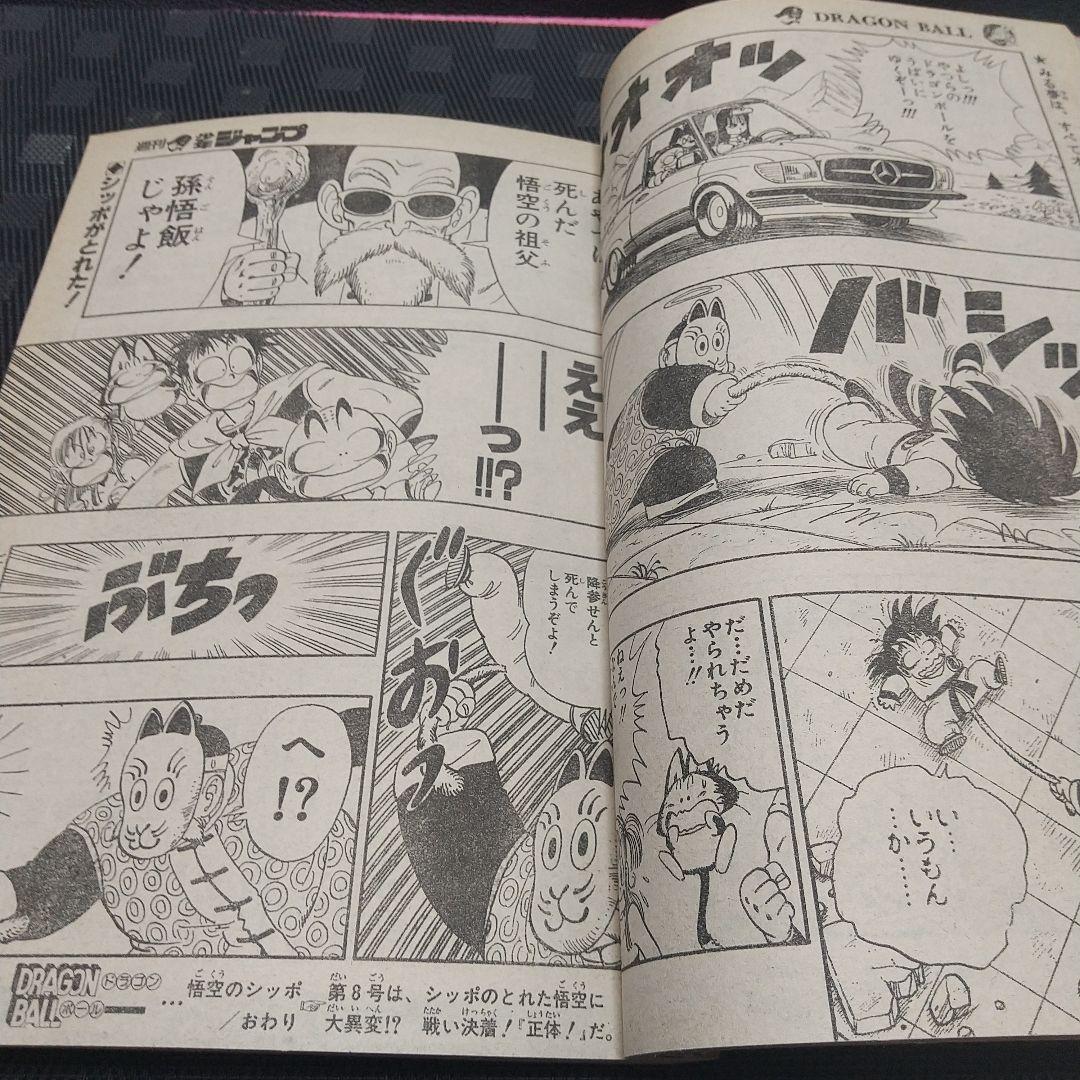 DRAGON BALL
★みる夢は、すべて
よしっ!!!
やつらの
ドラゴンボールを
うばいに
ゆくぞーっ!!!
オオッ
バシッ
い‥‥
いうもん
‥か‥‥‥
だ‥だめだ
やられちゃう
よ‥‥!!
ねえっ!!
週刊少年ジャンプ
死んだ
悟空の祖父
孫悟飯
じゃよ!
◆シッポがとれた!
ええ
──っ!!?
降参せんと
死んで
しまうぞよ!
ぐ
おっ
ぶちっ
へ!?
DRAGON BALL ドラゴンボール
…悟空のシッポ/おわり
☞第8号は、シッポのとれた悟空に
大異変!? 戦い決着!『正体!』だ。